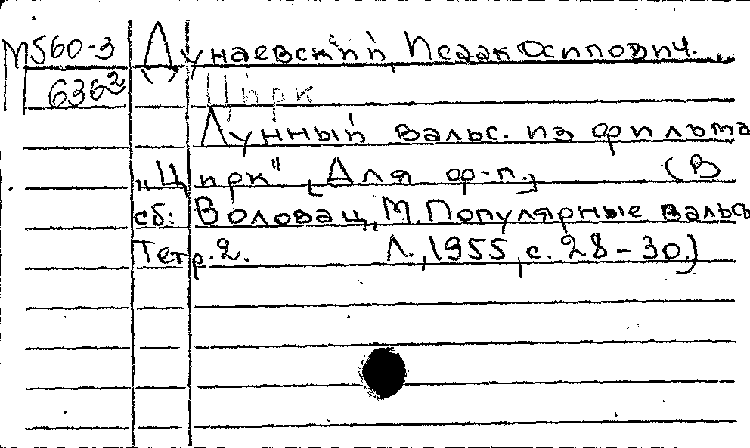 М560-3 Дунаевский, Исаак Осипович.
636² Цирк
Лунный вальс. из фильма
„Цирк" [Для ф-п.] (В
сб: Воловац, М. Популярные вальсы
Тетр. 2. Л., 1955, с. 28-30.)